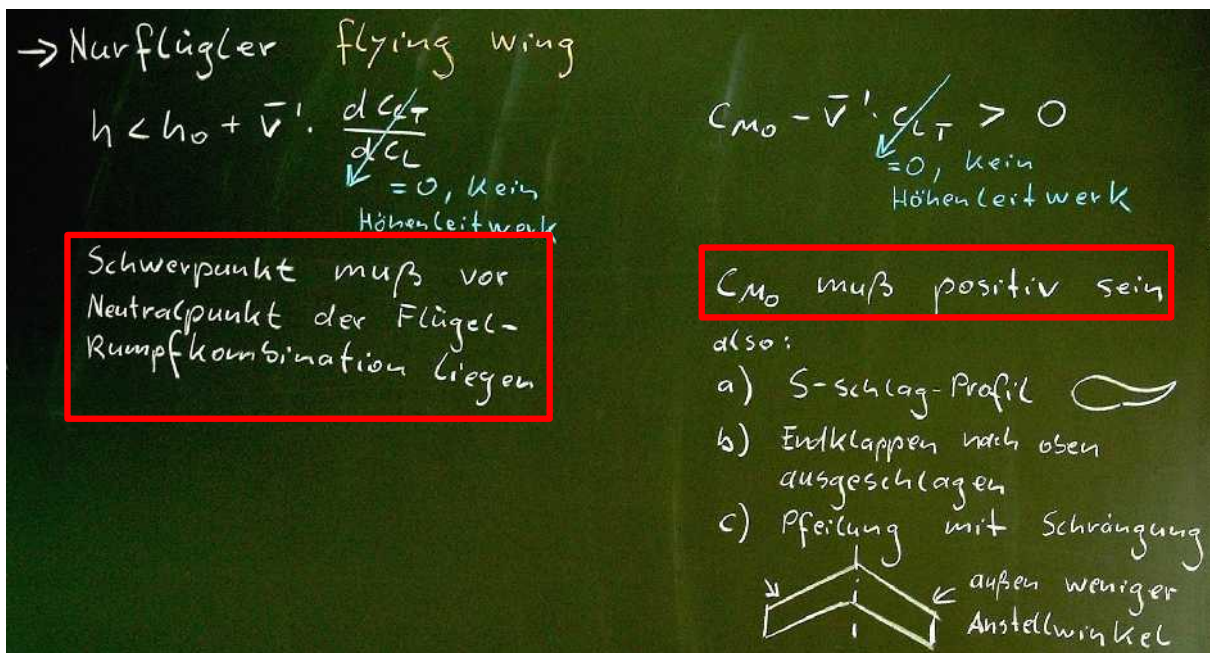 → Nurflügler flying wing
h < h₀ + V̄'. dC_LT / dC_L
= 0, kein
Höhenleitwerk
Schwerpunkt muß vor
Neutralpunkt der Flügel-
Rumpfkombination liegen
C_M₀ - V̄'. C_LT > 0
= 0, kein
Höhenleitwerk
C_M₀ muß positiv sein
also:
a) S-schlag-Profil
b) Endklappen nach oben
ausgeschlagen
c) Pfeilung mit Schränkung
außen weniger
Anstellwinkel